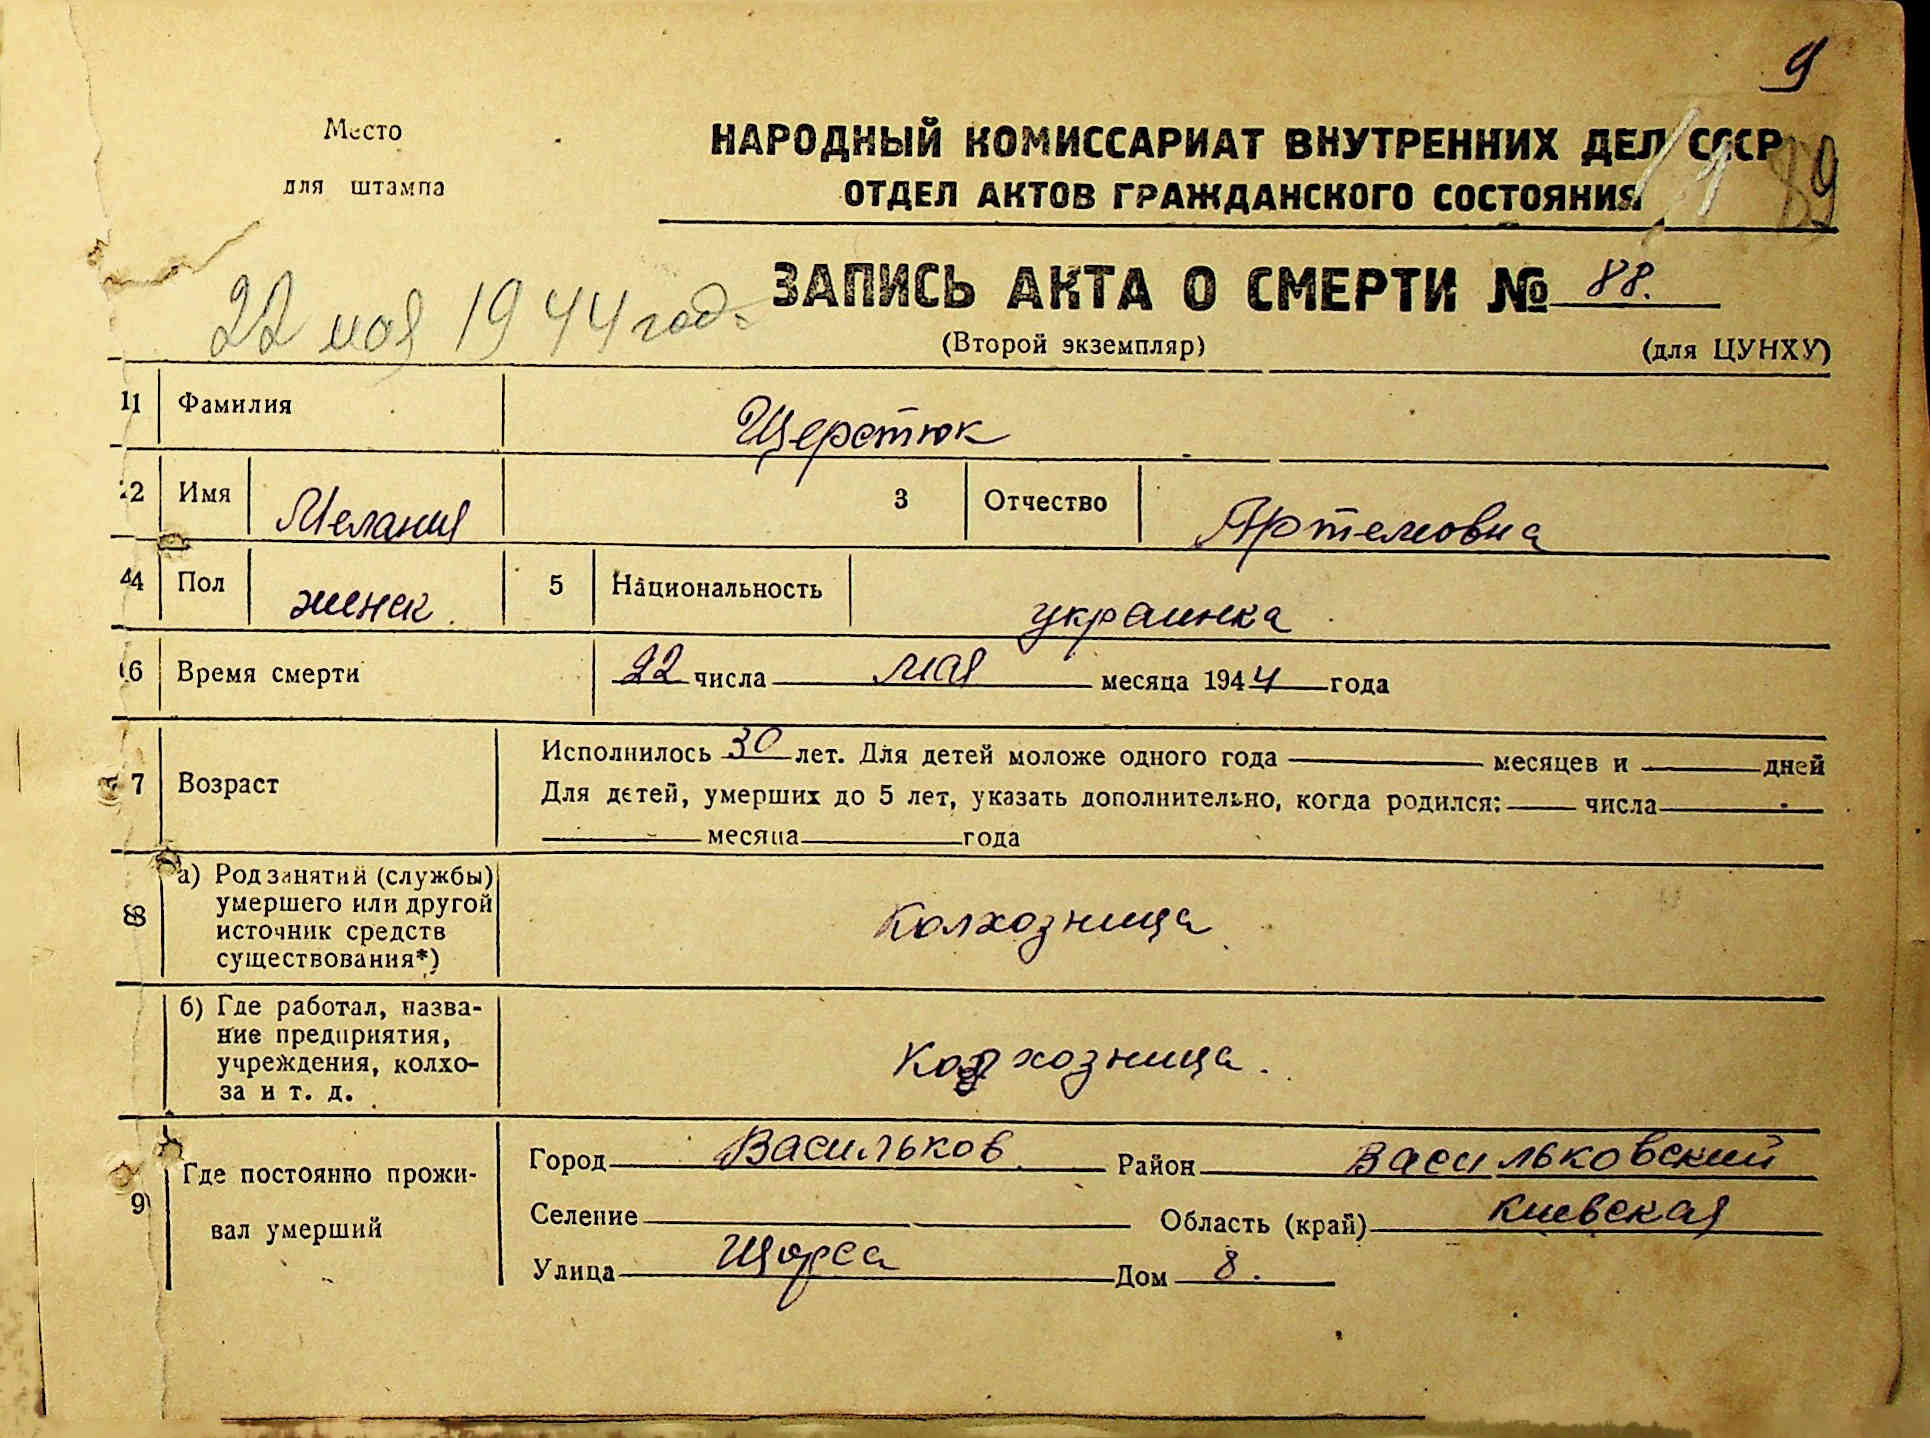 9
Место
для штампа
НАРОДНЫЙ КОМИССАРИАТ ВНУТРЕННИХ ДЕЛ СССР
ОТДЕЛ АКТОВ ГРАЖДАНСКОГО СОСТОЯНИЯ
89
22 мая 1944 год
ЗАПИСЬ АКТА О СМЕРТИ № 88.
(Второй экземпляр)
(для ЦУНХУ)
1 Фамилия Щерстюк
2 Имя Мелания 3 Отчество Артемовна
4 Пол женск. 5 Национальность украинка
6 Время смерти 22 числа мая месяца 1944 года
7 Возраст
Исполнилось 30 лет. Для детей моложе одного года месяцев и дней
Для детей, умерших до 5 лет, указать дополнительно, когда родился: числа
месяца года
8 а) Род занятий (службы)
умершего или другой
источник средств
существования*)
Колхозница
б) Где работал, назва-
ние предприятия,
учреждения, колхо-
за и т. д.
Колхозница.
9 Где постоянно прожи-
вал умерший
Город Васильков Район Васильковский
Селение Область (край) Киевская
Улица Щорса Дом 8.